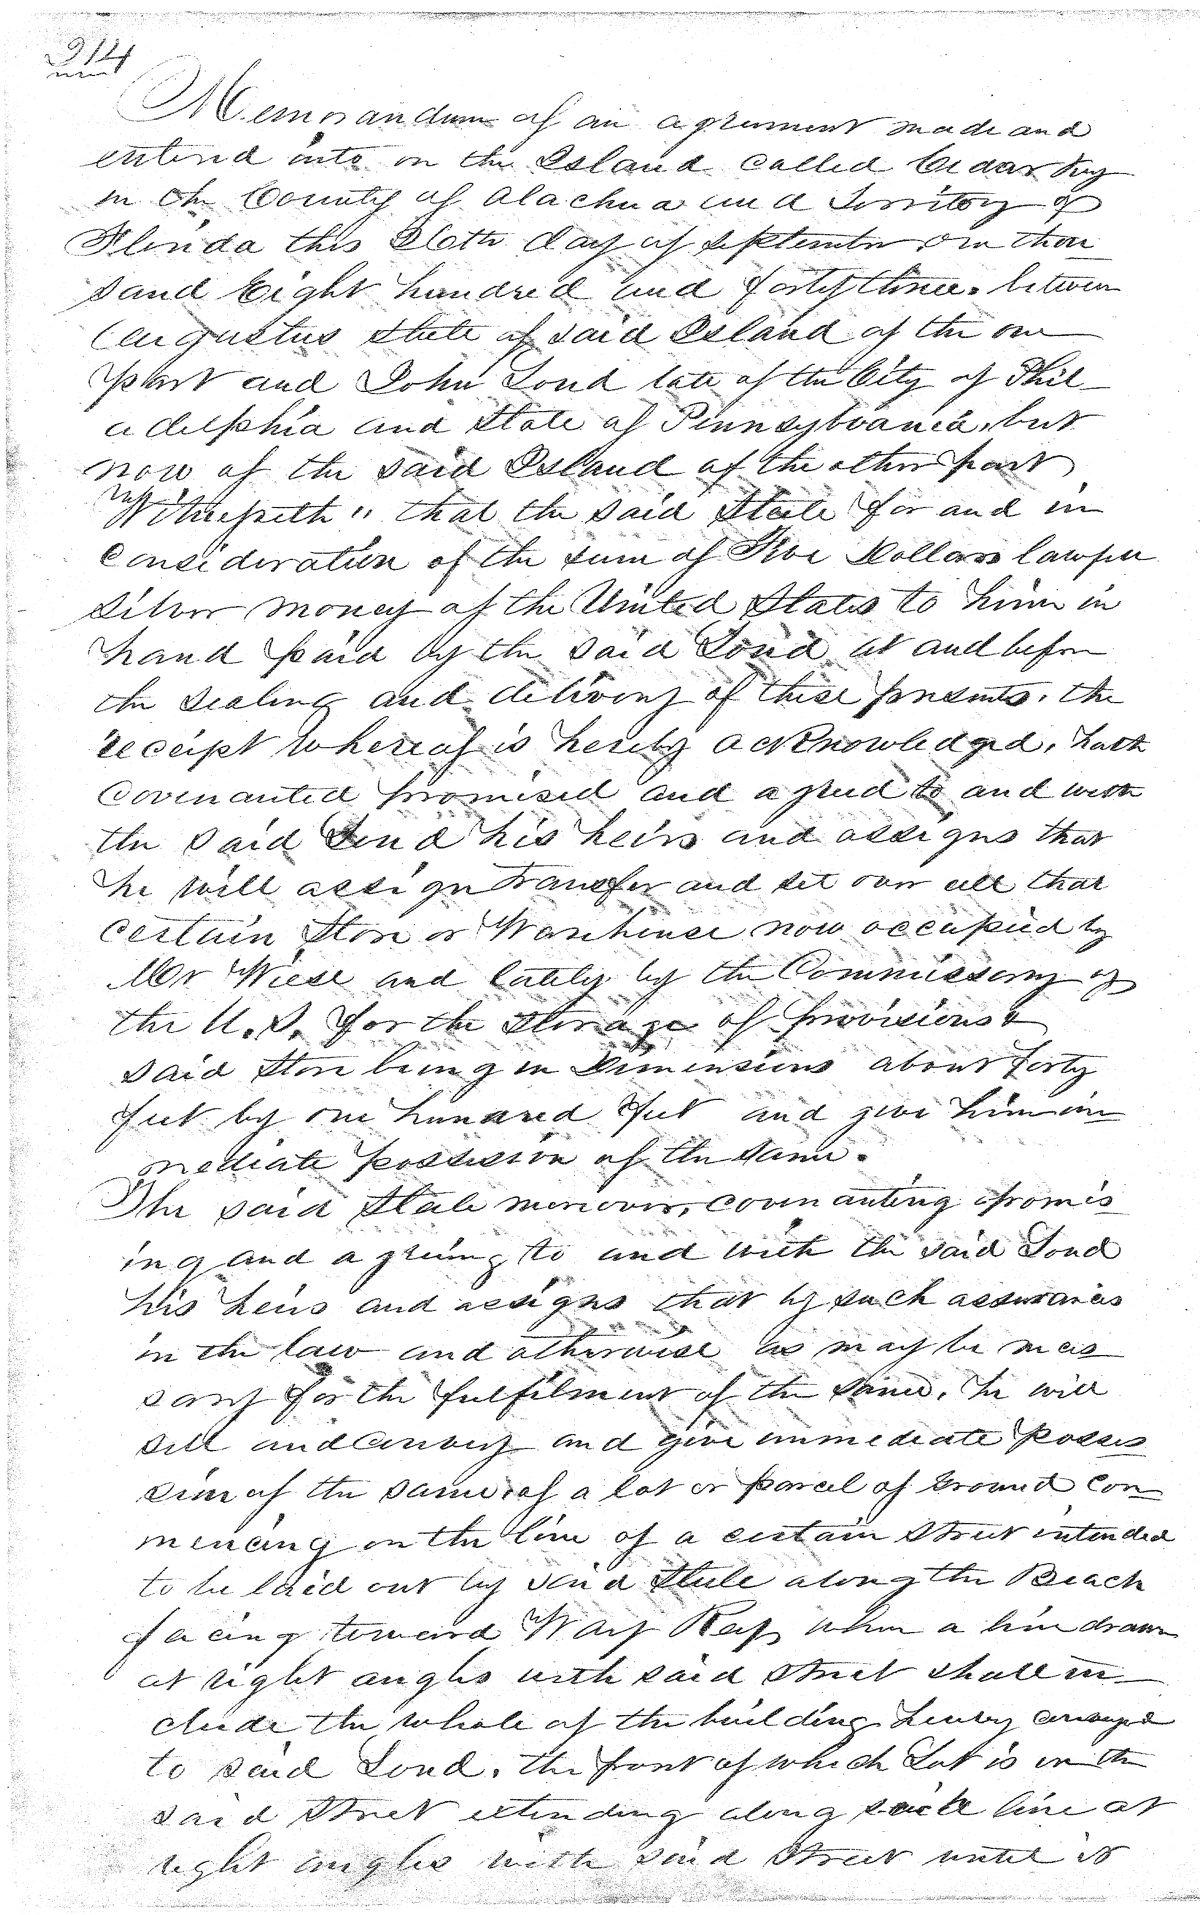 314
Memorandum of an agreement made and
entered into on the Island called Cedar Key
in the County of Alachua and Territory of
Florida this 26th day of September one thou
sand Eight hundred and forty three. between
Augustus Steele of said Island of the one
part and John Lond late of the City of Phil-
adelphia and State of Pennsylvania, but
now of the said Island of the other part
Witnesseth" that the said Steele for and in
consideration of the sum of Five Dollars lawful
silver money of the United States to him in
hand paid by the said Lond at and before
the sealing and delivery of these presents. the
receipt whereof is hereby acknowledged, hath
covenanted promised and agreed to and with
the said Lond his heirs and assigns that
he will assign transfer and set over all that
certain Store or Warehouse now occupied by
Mr Wiese and lately by the Commissary of
the U.S. for the storage of provisions &
said Store being in Dimensions about forty
feet by one hundred feet and give him im
mediate possession of the same.
The said Steele moreover, covenanting promis
ing and agreeing to and with the said Lond
his heirs and assigns that by such assurances
in the law and otherwise as may be neces
sary for the fulfilment of the same, he will
sell and convey and give immediate posses
sion of the same, of a lot or parcel of ground com
mencing on the line of a certain Street intended
to be laid out by said Steele along the Beach
facing toward Way Key where a line drawn
at right angles with said street shall in-
clude the whole of the building hereby conveyed
to said Lond, the front of which Lot is on the
said Street extending along said line at
right angles with said Street until it